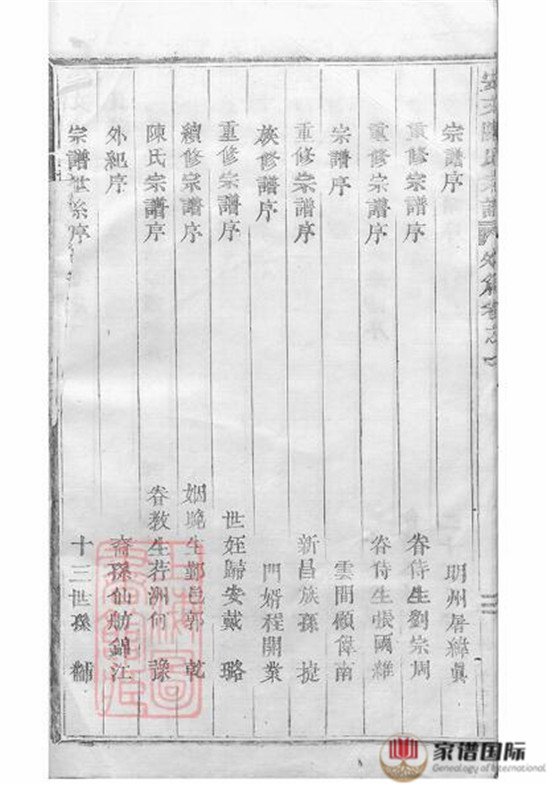 宗譜序 明州屠緯真
重修宗譜序 眷侍生劉宗周
重修宗譜序 眷侍生張國維
宗譜序 雲間顧偉南
重修宗譜序 新昌族孫 捷
族修譜序 門婿程開業
重修宗譜序 世姪歸安戴 璐
續修宗譜序 姻晚生鄞邑郭 乾
陳氏宗譜序 眷教生苕洲何 豫
外紀序 裔孫仙舫錦江
宗譜世系序 十三世孫 黼
家谱国际
Genealogy of International